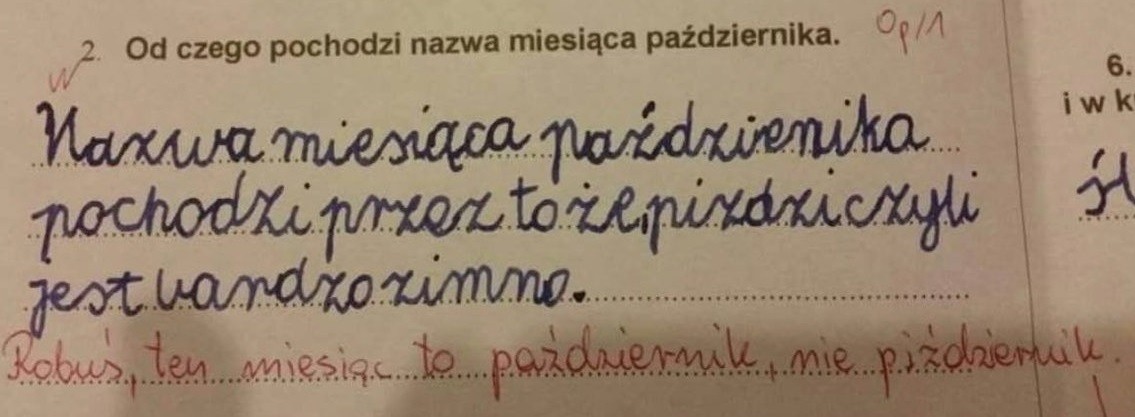 2. Od czego pochodzi nazwa miesiąca października. 0p/1
w
6.
i w k
Nazwa miesiąca paździenika
pochodzi przez to że, pizdzi czyli
jest bardzo zimno.
Robuś, ten miesiąc to październik, nie piździernik.